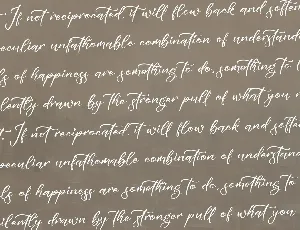 Is not reciprocated, it will flow back and soften
peculiar unfathomable combination of understand
ls of happiness are something to do, something to l
lently drawn by the stronger pull of what you r
t- Is not reciprocated, it will flow back and soften
peculiar unfathomable combination of understand
ls of happiness are something to do, something to
silently drawn by the stronger pull of what you